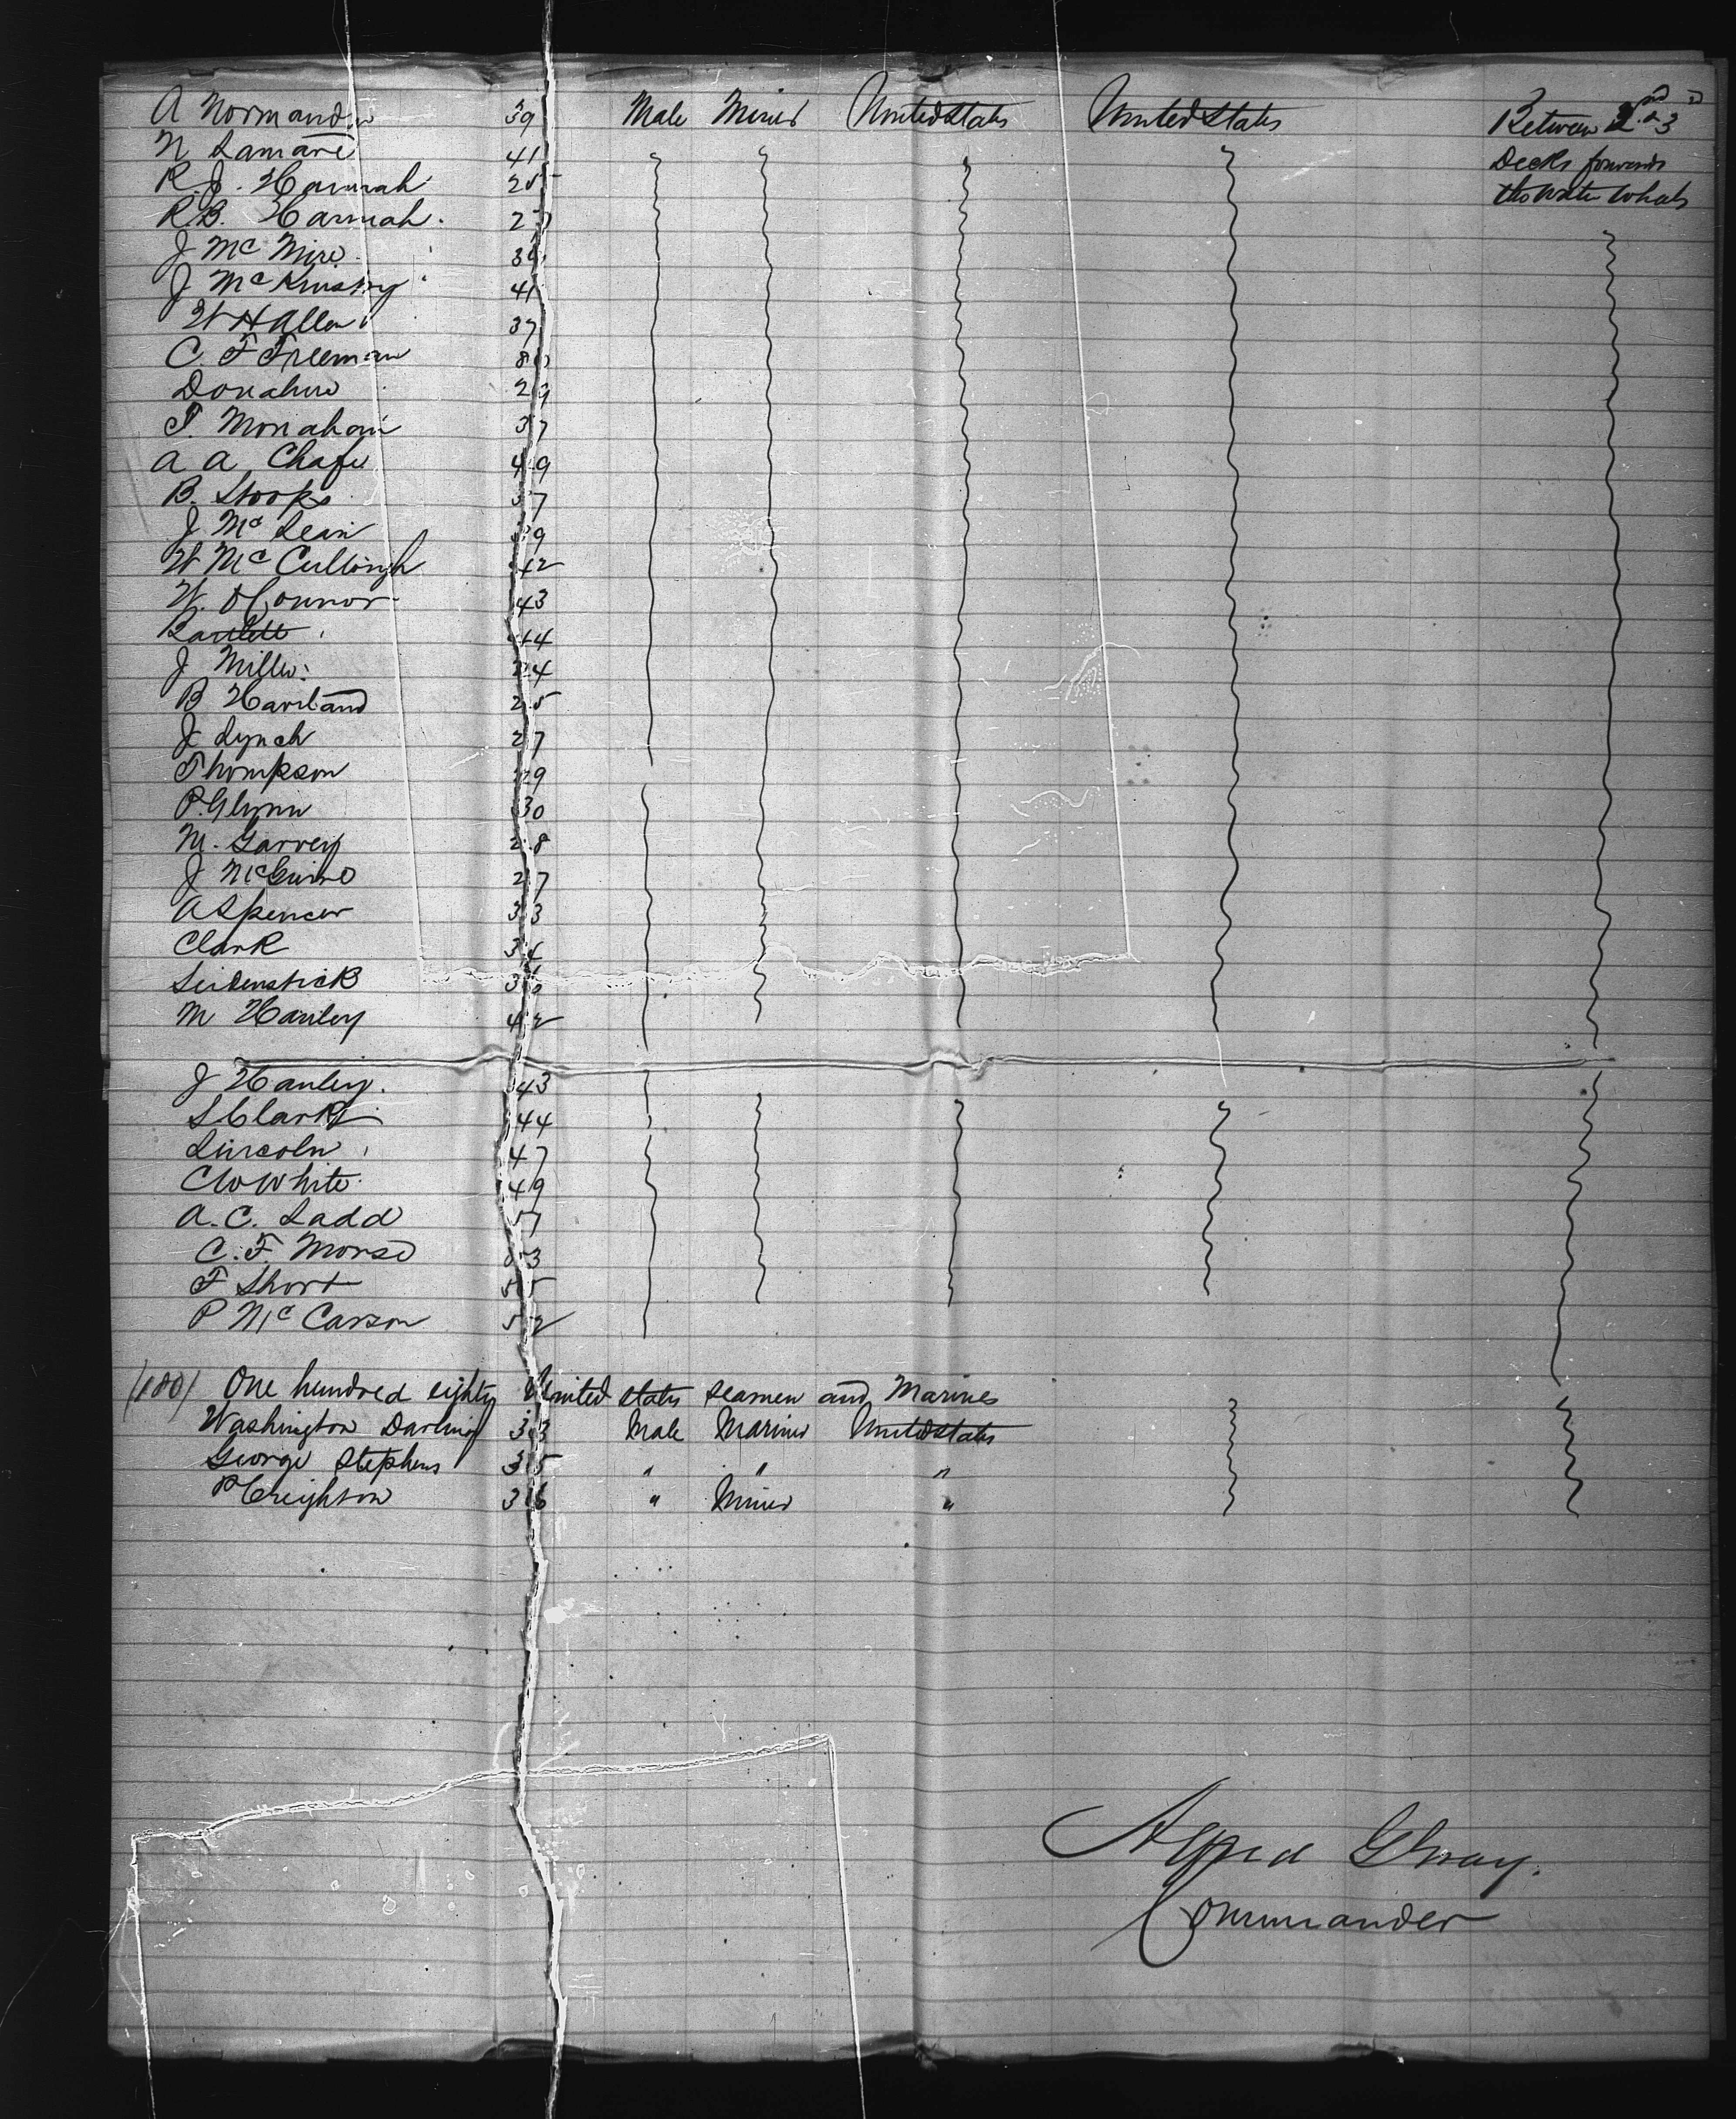 A Normandin 39 Male Miner United States United States Between 2nd & 3d
N Lamare 41 Decks forward
R. J. Hannah 25 the water wheels
R. B. Hannah.
J McMire
J McKinstry 41
W H Allen 37
C. F Freeman
Donahue 29
T. Monahain 37
A A Chafe 49
B. Stoops 37
J McLean 39
W McCullough 42
W. O'Connor 43
Bartlett 44
J Miller 24
B Haviland 25
J Lynch 27
Thompson 29
P. Glynn 30
M. Garvey 28
J McGuire 27
A Spencer 33
Clark 34
Seidenstick 36
M Hanley 42
J Hanley. 43
S Clark 44
Lincoln 47
C W White 49
A. C. Ladd 57
C. F. Morse 53
F Short 55
P McCarson 52
(180) One hundred eighty United States seamen and Marines
Washington Darling 33 Male Mariner United States
George Stephens 35 " " "
P Creighton 36 " Miner "
Alfred G Gray.
Commander